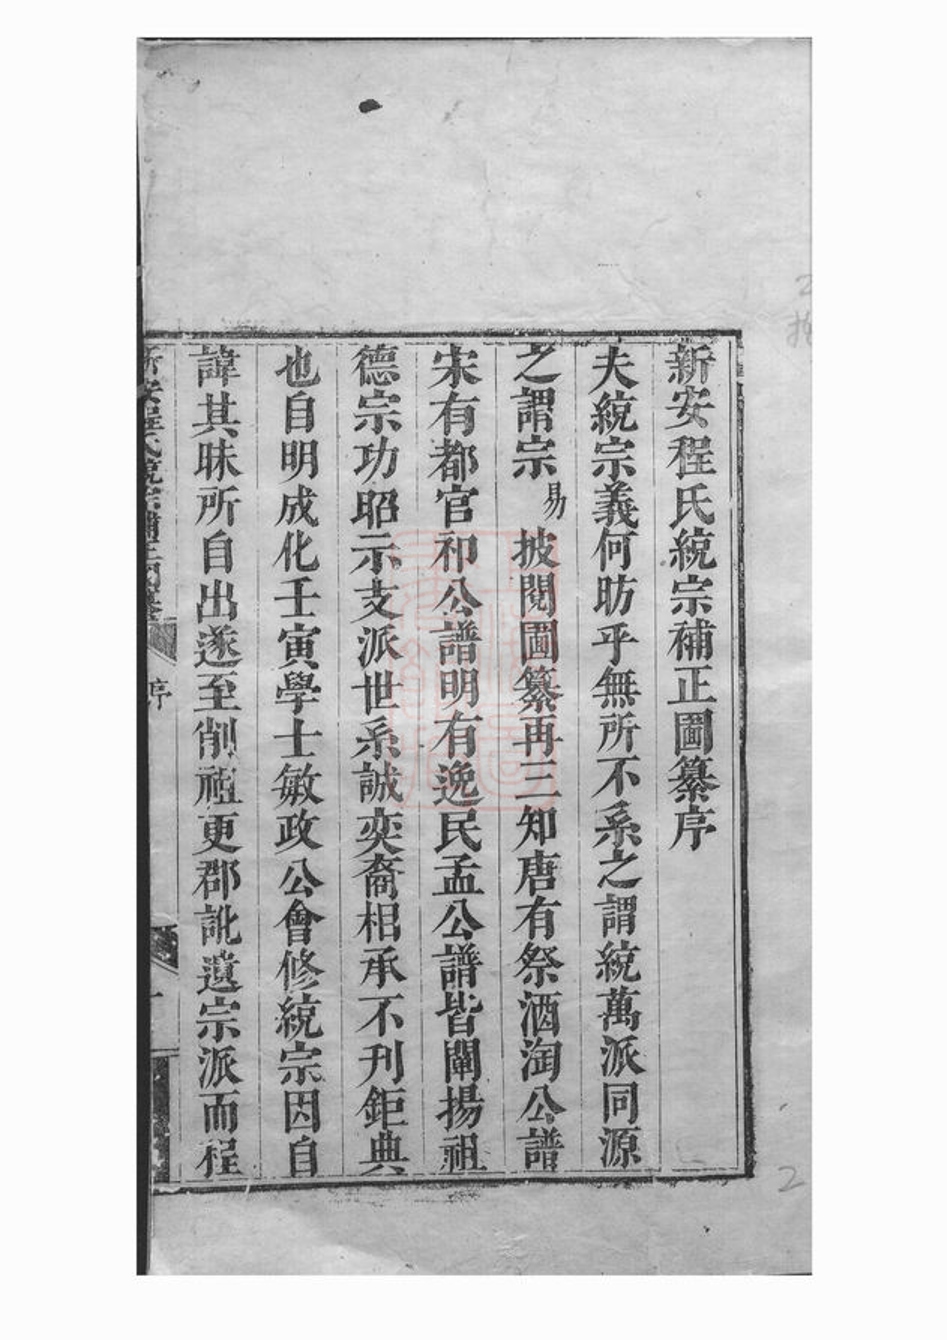 新安程氏統宗補正圖纂序
夫統宗義何昉乎無所不系之謂統萬派同源
之謂宗易披閱圖纂再三知唐有祭酒淘公譜
宋有都官祁公譜明有逸民孟公譜皆闡揚祖
德宗功昭示支派世系誠奕裔相承不刊鉅典
也自明成化壬寅學士敏政公會修統宗因自
諱其昧所自出遂至削祖更郡訛遺宗派而程
新安程氏統宗補正圖纂
序